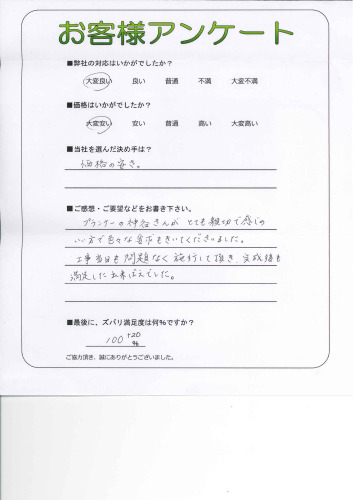 お客様アンケート
■弊社の対応はいかがでしたか?
大変良い 良い 普通 不満 大変不満
■価格はいかがでしたか?
大変安い 安い 普通 高い 大変高い
■当社を選んだ決め手は?
価格の安さ。
■ご感想・ご要望などをお書き下さい。
プランナーの神谷さんが とても親切で感じの
いい方で色々な要望もきいてくださいました。
工事当日も問題なく施行して頂き、完成後も
満足した出来ばえでした。
■最後に、ズバリ満足度は何%ですか?
100+20 %
ご協力頂き、誠にありがとうございました。